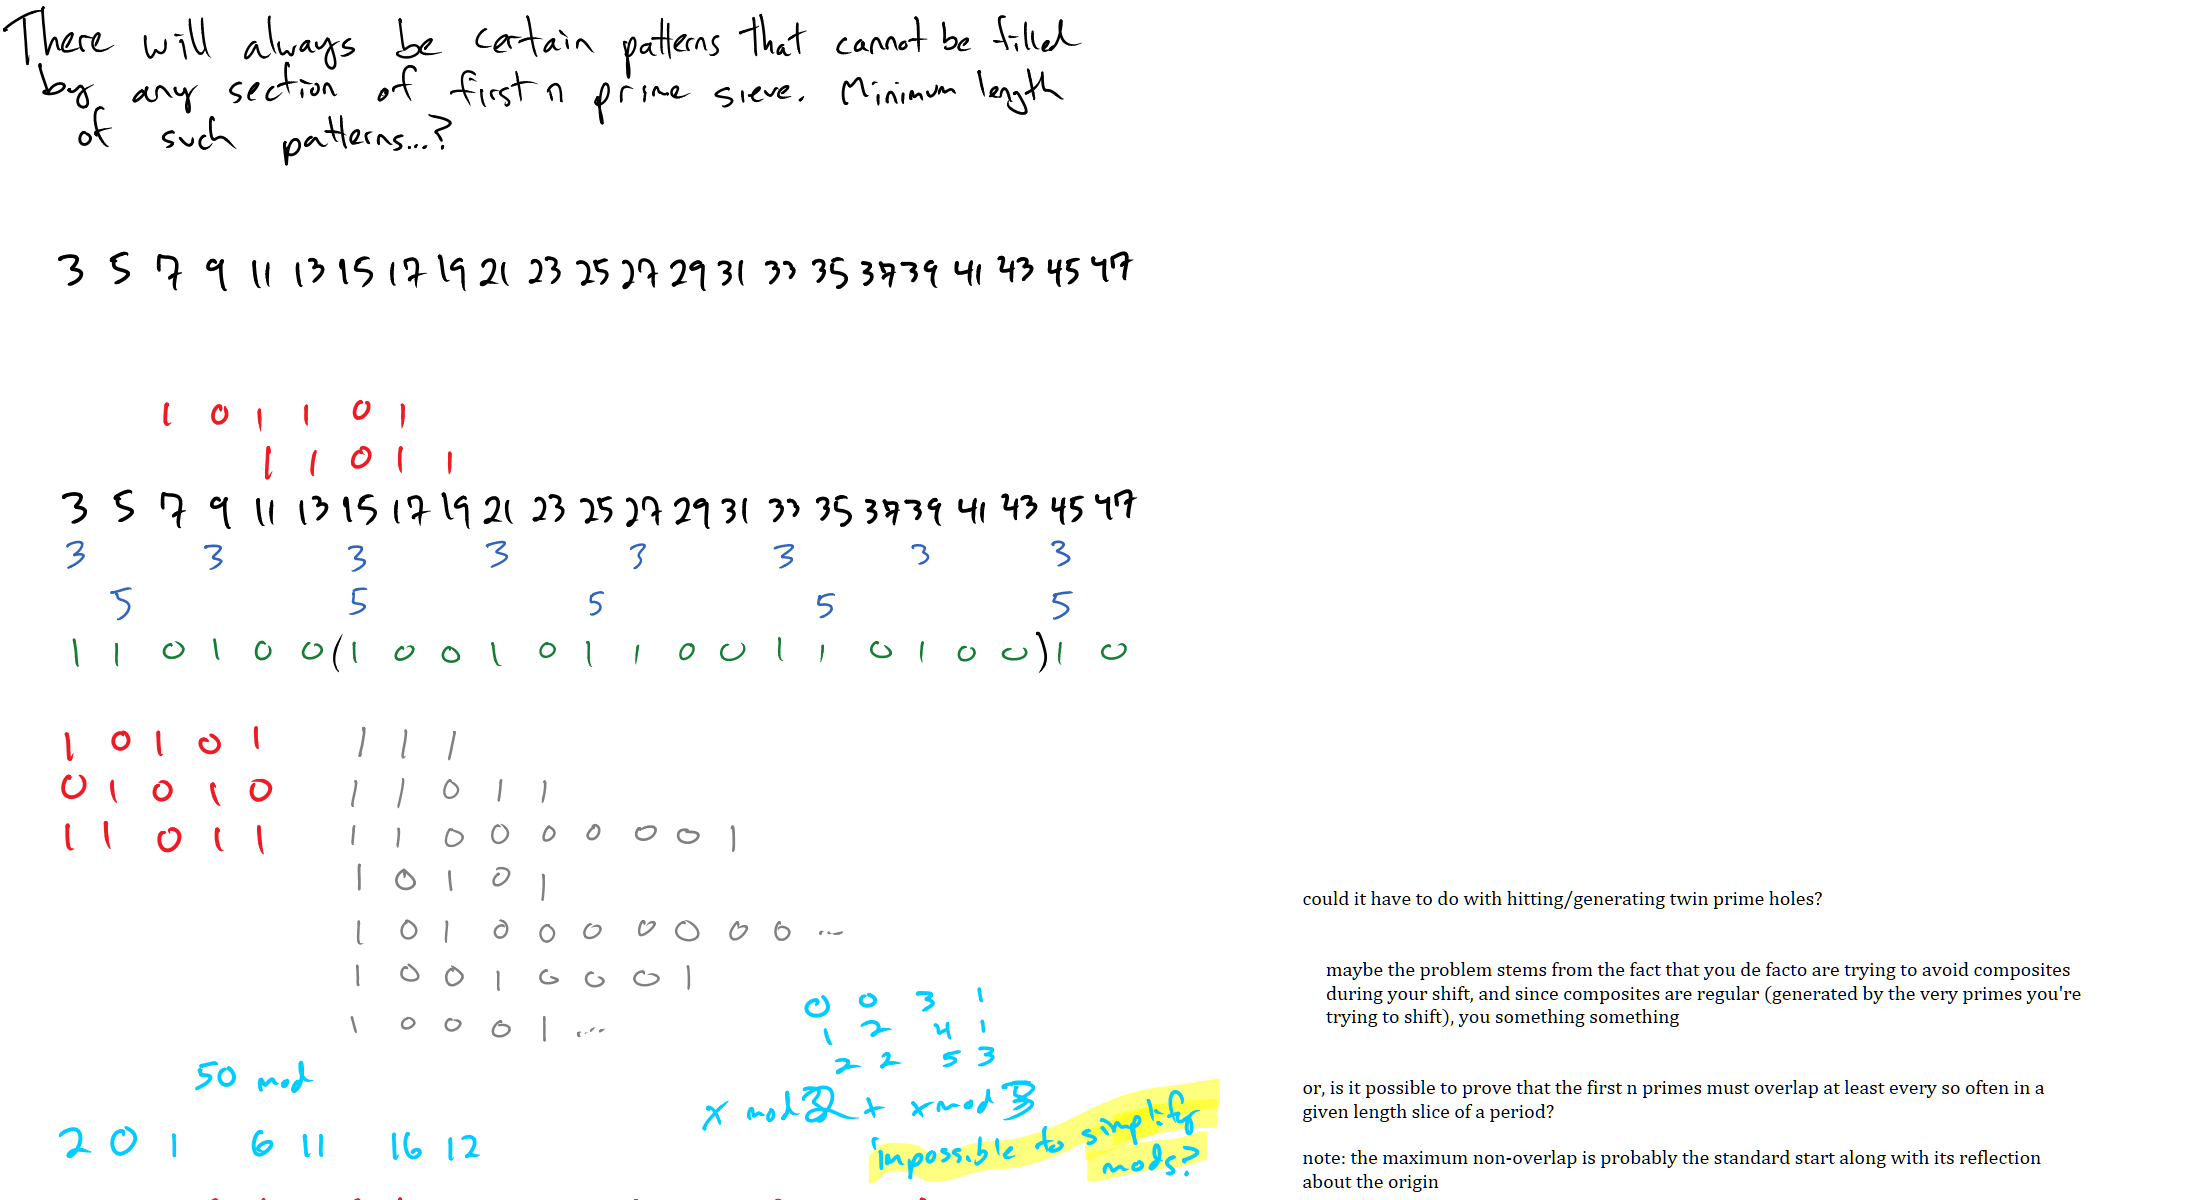 There will always be certain patterns that cannot be filled
by any section of first n prime sieve. Minimum length
of such patterns...?
3 5 7 9 11 13 15 17 19 21 23 25 27 29 31 33 35 37 39 41 43 45 47
1 0 1 1 0 1
1 1 0 1 1
3 5 7 9 11 13 15 17 19 21 23 25 27 29 31 33 35 37 39 41 43 45 47
3 3 3 3 3 3 3 3
5 5 5 5 5
1 1 0 1 0 0 (1 0 0 1 0 1 1 0 0 1 1 0 1 0 0) 1 0
1 0 1 0 1
0 1 0 1 0
1 1 0 1 1
1 1 1
1 1 0 1 1
1 1 0 0 0 0 0 0 1
1 0 1 0 1
1 0 1 0 0 0 0 0 0 0 ...
1 0 0 1 0 0 0 1
1 0 0 0 1 ...
50 mod
2 0 1 6 11 16 12
0 0 3 1
1 2 4 1
2 2 5 3
x mod 2 + x mod 3
impossible to simplify
mods?
could it have to do with hitting/generating twin prime holes?
maybe the problem stems from the fact that you de facto are trying to avoid composites
during your shift, and since composites are regular (generated by the very primes you're
trying to shift), you something something
or, is it possible to prove that the first n primes must overlap at least every so often in a
given length slice of a period?
note: the maximum non-overlap is probably the standard start along with its reflection
about the origin